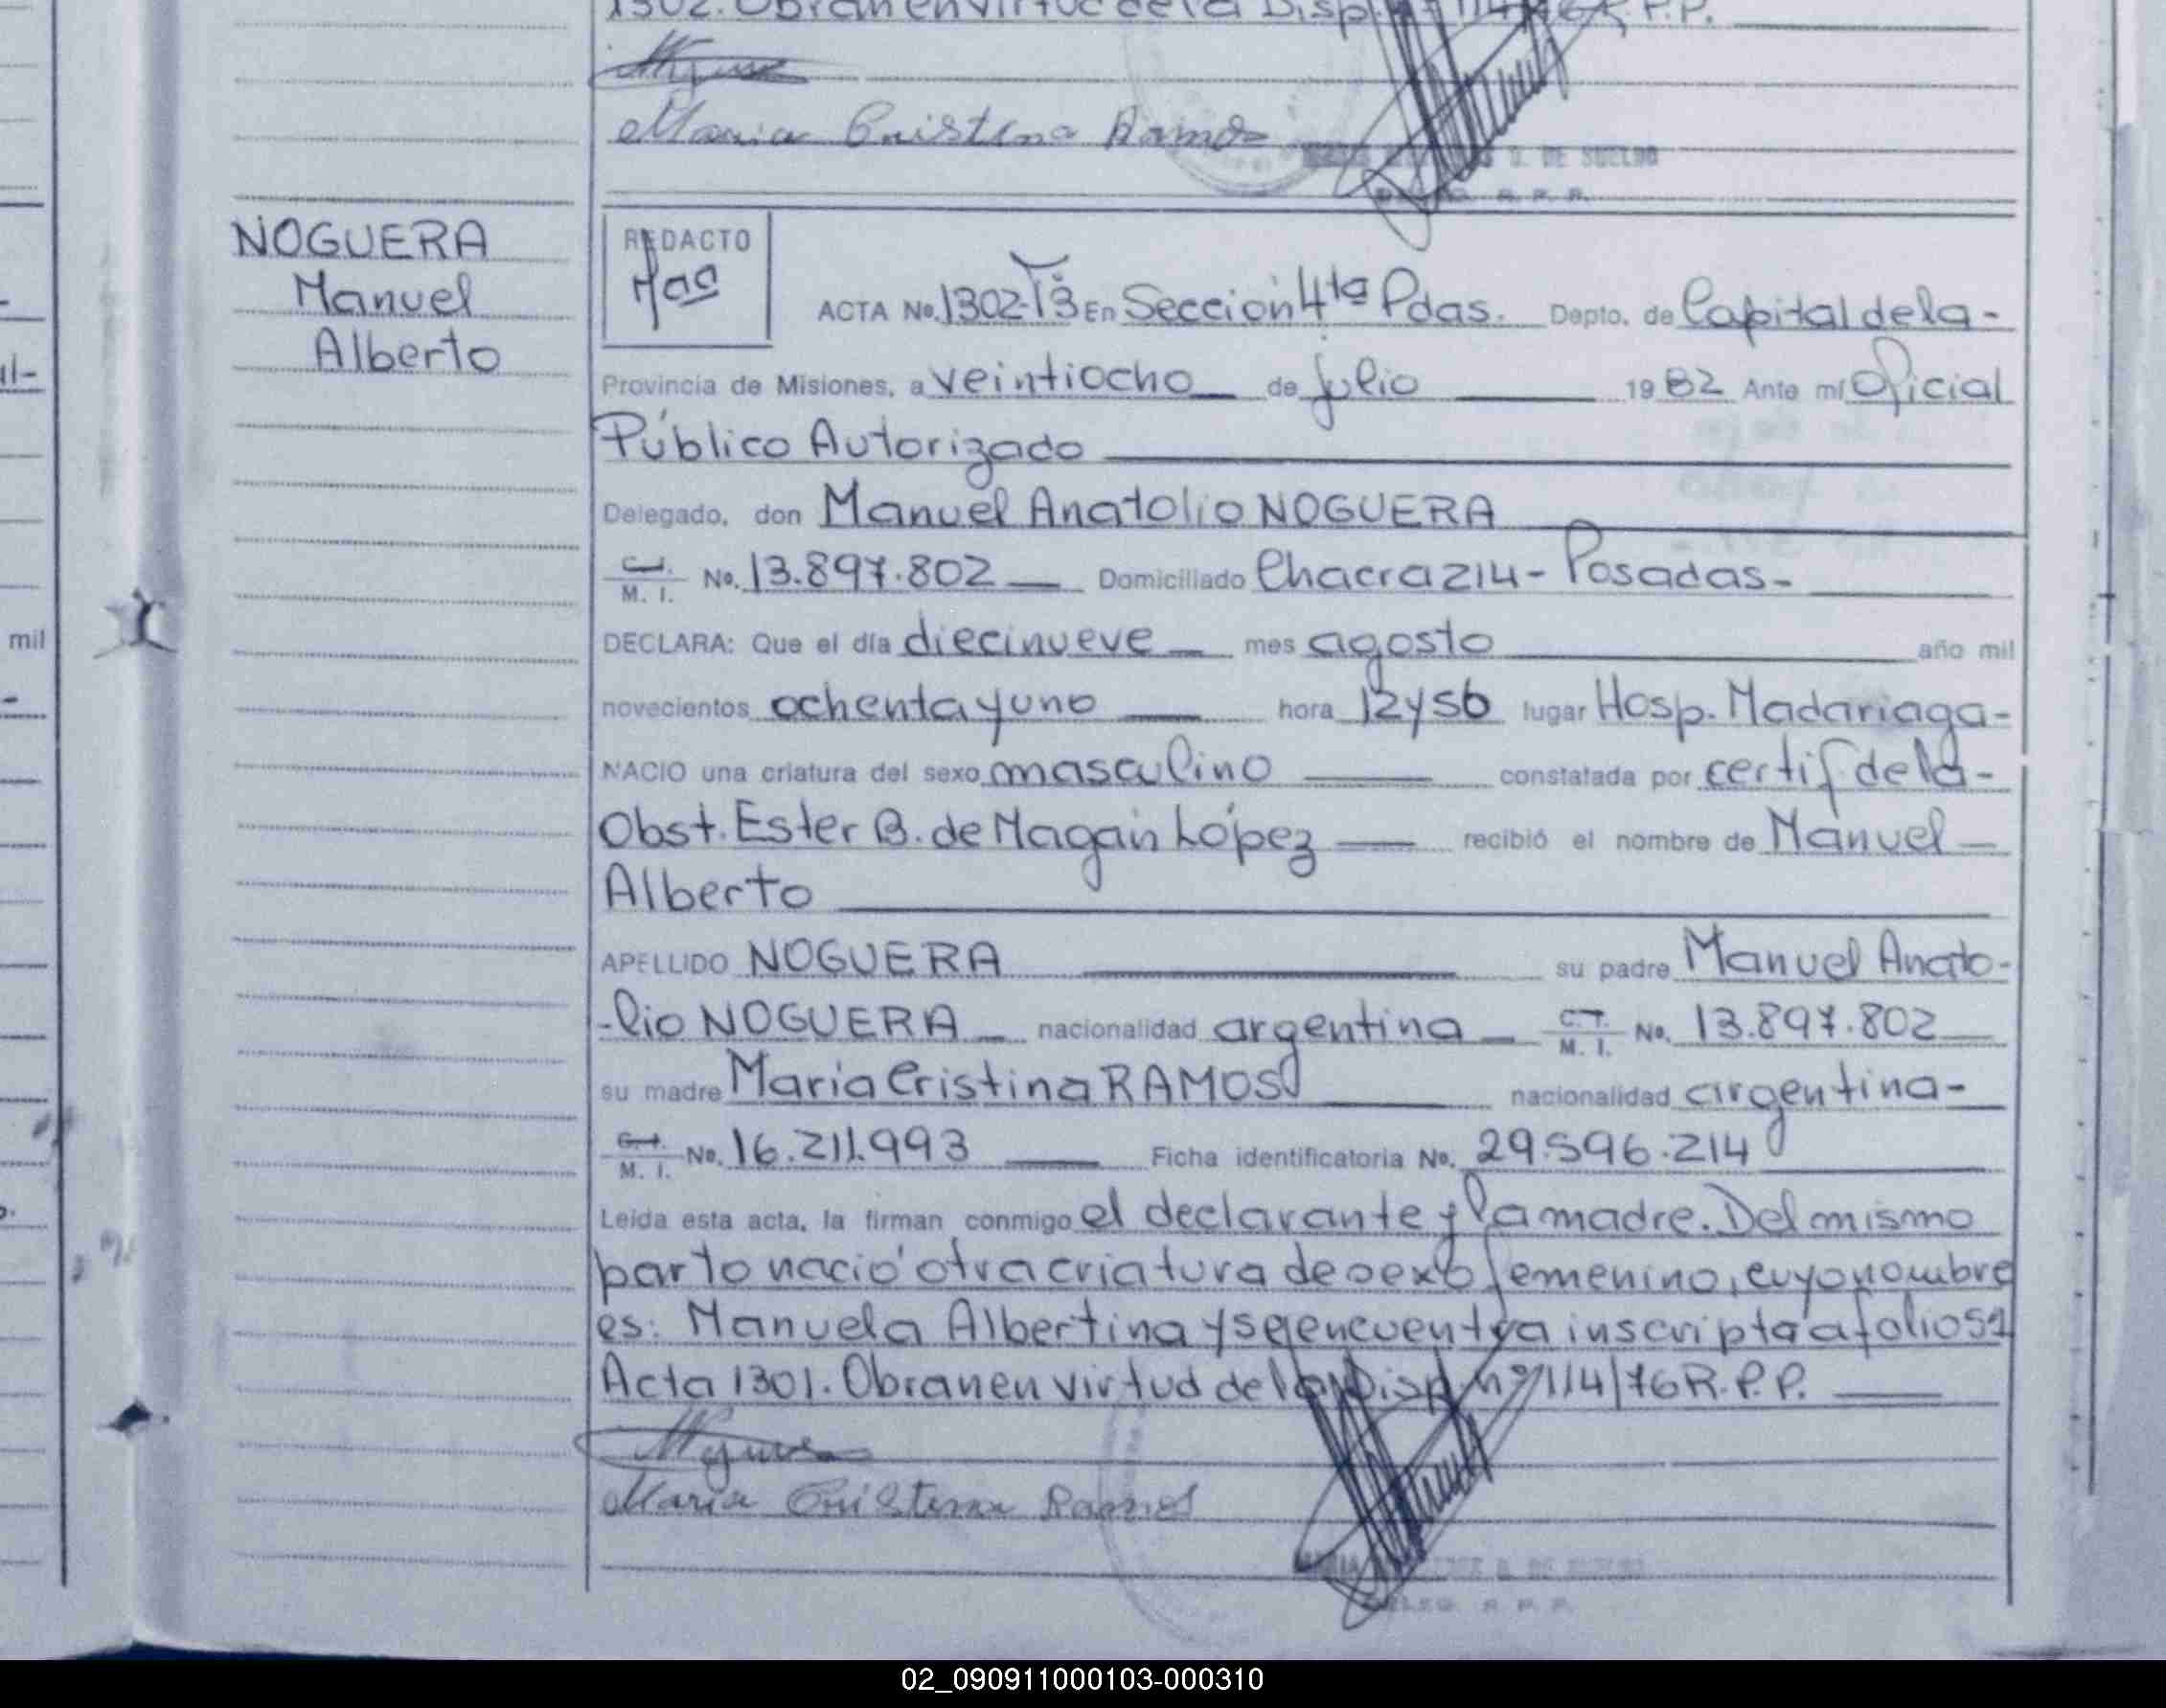 1302. Obran en virtud de la Disp. 114/76 R.P.P.
Maria Cristina Ramos
D. DE SUELDO
R. P. P.
NOGUERA
Manuel
Alberto
REDACTO
ACTA No. 1302-T3 En Sección 4ta Pdas. Depto. de Capital de la-
Provincia de Misiones, a veintiocho de julio 1982 Ante mí Oficial
Público Autorizado
Delegado, don Manuel Anatolio NOGUERA
C.I.
M. I. No. 13.897.802 Domiciliado Chacra 214- Posadas-
DECLARA: Que el día diecinueve mes agosto año mil
novecientos ochenta y uno hora 12 y 56 lugar Hosp. Madariaga-
NACIO una criatura del sexo masculino constatada por certif de la-
Obst. Ester B. de Magain López recibió el nombre de Manuel
Alberto
APELLIDO NOGUERA su padre Manuel Anato-
-lio NOGUERA nacionalidad argentina C.I.
M. I. No. 13.897.802
su madre Maria Cristina RAMOS nacionalidad argentina-
C.I.
M. I. No. 16.211.993 Ficha identificatoria No. 29.596.214
Leída esta acta, la firman conmigo el declarante y la madre. Del mismo
parto nació otra criatura de sexo femenino, cuyo nombre
es: Manuela Albertina y se encuentra inscripta a folio 51
Acta 1301. Obran en virtud de la Disp nº 114/76 R.P.P.
Maria Cristina Ramos
D. DE SUELDO
DELEG. R. P. P.
mil
02_090911000103-000310